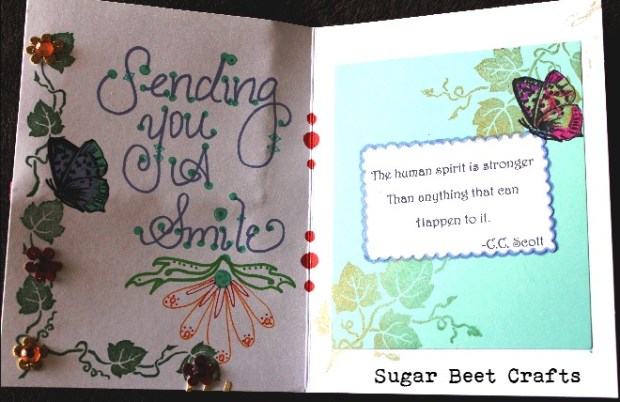 Sending
you
A
Smile
The human spirit is stronger
Than anything that can
Happen to it.
-C.C. Scott
Sugar Beet Crafts